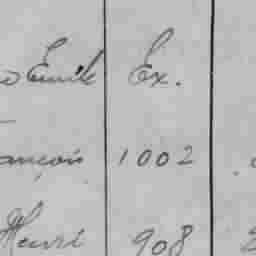 Emile Ex.
ançois 1002
Henri 908